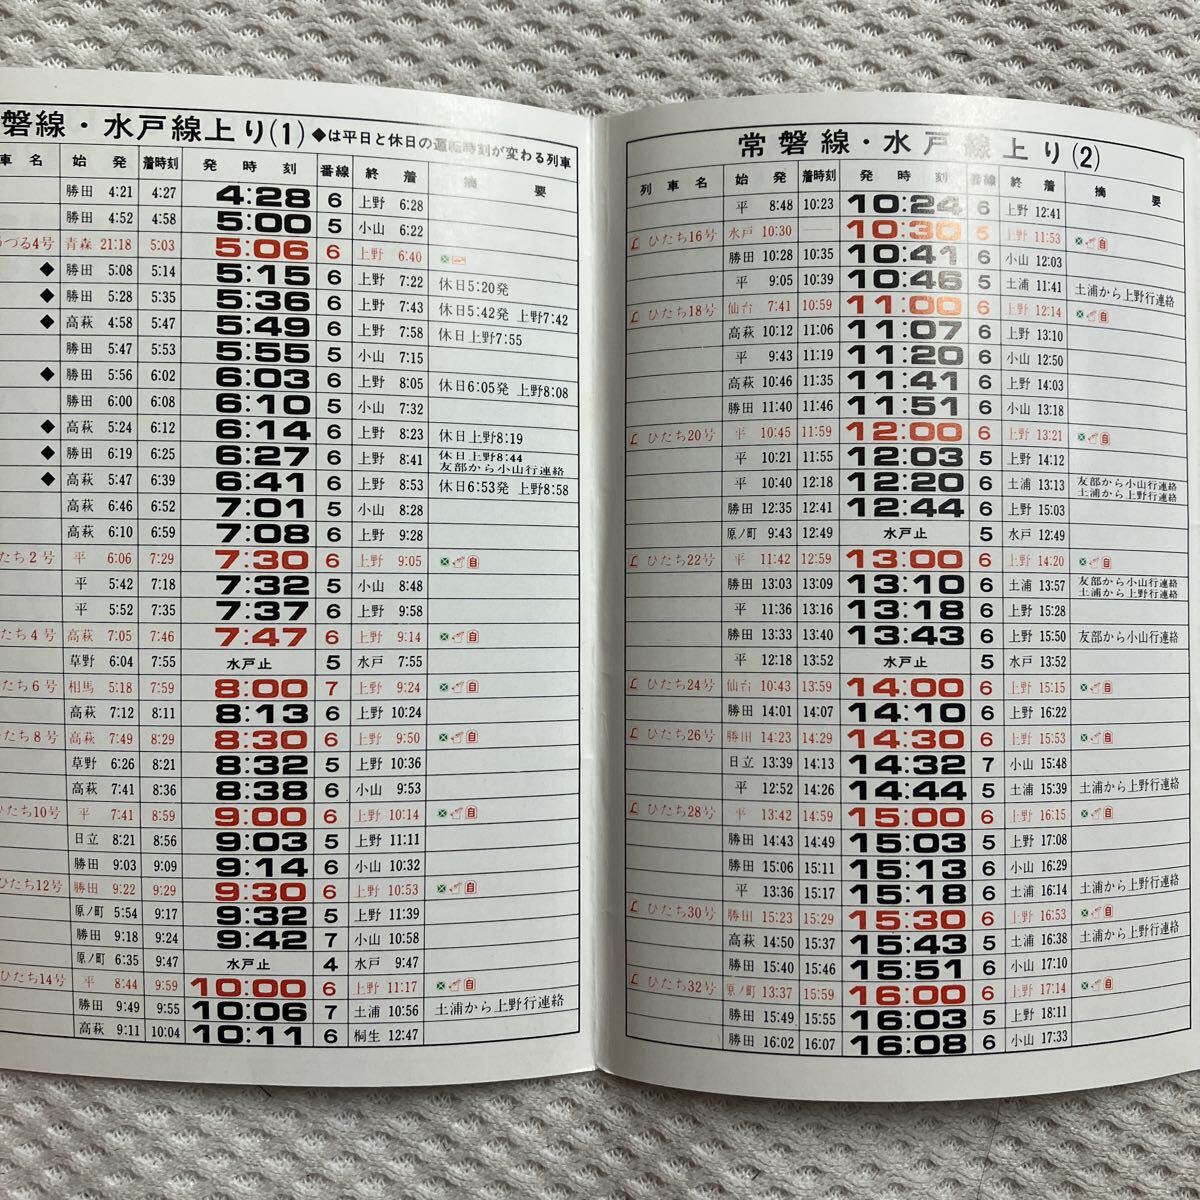 磐線・水戸線上り(1) ◆は平日と休日の運転時刻が変わる列車
車名 始発 着時刻 発時刻 番線 終着 摘要
勝田 4:21 4:27 4:28 6 上野 6:28
勝田 4:52 4:58 5:00 5 小山 6:22
うづる4号 青森 21:18 5:03 5:06 6 上野 6:40
◆ 勝田 5:08 5:14 5:15 6 上野 7:22 休日5:20発
◆ 勝田 5:28 5:35 5:36 6 上野 7:43 休日5:42発 上野7:42
◆ 高萩 4:58 5:47 5:49 6 上野 7:58 休日上野7:55
勝田 5:47 5:53 5:55 5 小山 7:15
◆ 勝田 5:56 6:02 6:03 6 上野 8:05 休日6:05発 上野8:08
勝田 6:00 6:08 6:10 5 小山 7:32
◆ 高萩 5:24 6:12 6:14 6 上野 8:23 休日上野8:19
◆ 勝田 6:19 6:25 6:27 6 上野 8:41 休日上野8:44 友部から小山行連絡
◆ 高萩 5:47 6:39 6:41 6 上野 8:53 休日6:53発 上野8:58
高萩 6:46 6:52 7:01 5 小山 8:28
高萩 6:10 6:59 7:08 6 上野 9:28
たち2号 平 6:06 7:29 7:30 6 上野 9:05 自
平 5:42 7:18 7:32 5 小山 8:48
平 5:52 7:35 7:37 6 上野 9:58
たち4号 高萩 7:05 7:46 7:47 6 上野 9:14 自
草野 6:04 7:55 水戸止 5 水戸 7:55
たち6号 相馬 5:18 7:59 8:00 7 上野 9:24 自
高萩 7:12 8:11 8:13 6 上野 10:24
たち8号 高萩 7:49 8:29 8:30 6 上野 9:50 自
草野 6:26 8:21 8:32 5 上野 10:36
高萩 7:41 8:36 8:38 6 小山 9:53
たち10号 平 7:41 8:59 9:00 6 上野 10:14 自
日立 8:21 8:56 9:03 5 上野 11:11
勝田 9:03 9:09 9:14 6 小山 10:32
ひたち12号 勝田 9:22 9:29 9:30 6 上野 10:53 自
原ノ町 5:54 9:17 9:32 5 上野 11:39
勝田 9:18 9:24 9:42 7 小山 10:58
原ノ町 6:35 9:47 水戸止 4 水戸 9:47
ひたち14号 平 8:44 9:59 10:00 6 上野 11:17 自
勝田 9:49 9:55 10:06 7 土浦 10:56 土浦から上野行連絡
高萩 9:11 10:04 10:11 6 桐生 12:47
常磐線・水戸線上り(2)
列車名 始発 着時刻 発時刻 番線 終着 摘要
平 8:48 10:23 10:24 6 上野 12:41
L ひたち16号 水戸 10:30 — 10:30 5 上野 11:53 自
勝田 10:28 10:35 10:41 6 小山 12:03
平 9:05 10:39 10:46 5 土浦 11:41 土浦から上野行連絡
L ひたち18号 仙台 7:41 10:59 11:00 6 上野 12:14 自
高萩 10:12 11:06 11:07 6 上野 13:10
平 9:43 11:19 11:20 6 小山 12:50
高萩 10:46 11:35 11:41 6 上野 14:03
勝田 11:40 11:46 11:51 6 小山 13:18
L ひたち20号 平 10:45 11:59 12:00 6 上野 13:21 自
平 10:21 11:55 12:03 5 上野 14:12
平 10:40 12:18 12:20 6 土浦 13:13 友部から小山行連絡 土浦から上野行連絡
勝田 12:35 12:41 12:44 6 上野 15:03
原ノ町 9:43 12:49 水戸止 5 水戸 12:49
L ひたち22号 平 11:42 12:59 13:00 6 上野 14:20 自
勝田 13:03 13:09 13:10 6 土浦 13:57 友部から小山行連絡 土浦から上野行連絡
平 11:36 13:16 13:18 6 上野 15:28
勝田 13:33 13:40 13:43 6 上野 15:50 友部から小山行連絡
平 12:18 13:52 水戸止 5 水戸 13:52
L ひたち24号 仙台 10:43 13:59 14:00 6 上野 15:15 自
勝田 14:01 14:07 14:10 6 上野 16:22
L ひたち26号 勝田 14:23 14:29 14:30 6 上野 15:53 自
日立 13:39 14:13 14:32 7 小山 15:48
平 12:52 14:26 14:44 5 土浦 15:39 土浦から上野行連絡
L ひたち28号 平 13:42 14:59 15:00 6 上野 16:15 自
勝田 14:43 14:49 15:03 5 上野 17:08
勝田 15:06 15:11 15:13 6 小山 16:29
平 13:36 15:17 15:18 6 土浦 16:14 土浦から上野行連絡
L ひたち30号 勝田 15:23 15:29 15:30 6 上野 16:53 自
高萩 14:50 15:37 15:43 5 土浦 16:38 土浦から上野行連絡
勝田 15:40 15:46 15:51 6 小山 17:10
L ひたち32号 原ノ町 13:37 15:59 16:00 6 上野 17:14 自
勝田 15:49 15:55 16:03 5 上野 18:11
勝田 16:02 16:07 16:08 6 小山 17:33